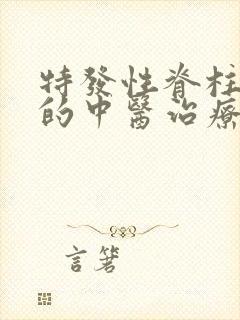 特發性脊柱
的中醫治療
言箸